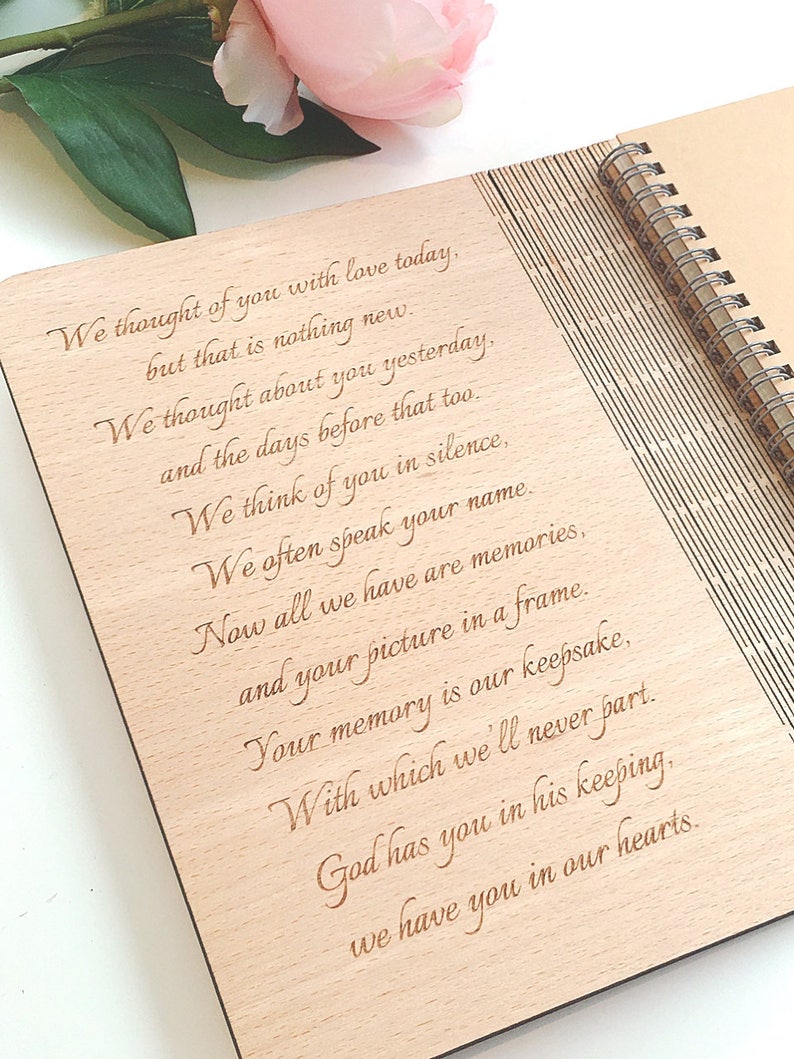 We thought of you with love today,
but that is nothing new.
We thought about you yesterday,
and the days before that too.
We think of you in silence,
We often speak your name.
Now all we have are memories,
and your picture in a frame.
Your memory is our keepsake,
With which we'll never part.
God has you in his keeping,
we have you in our hearts.